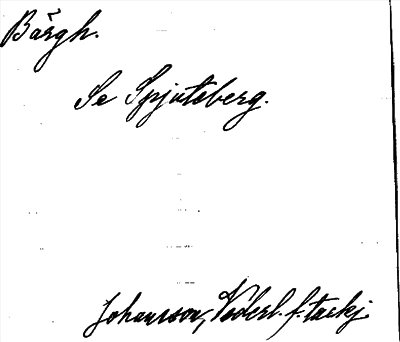 Bårgh.
Se Spjutsberg.
Johansson, Nederl. f. tackj.